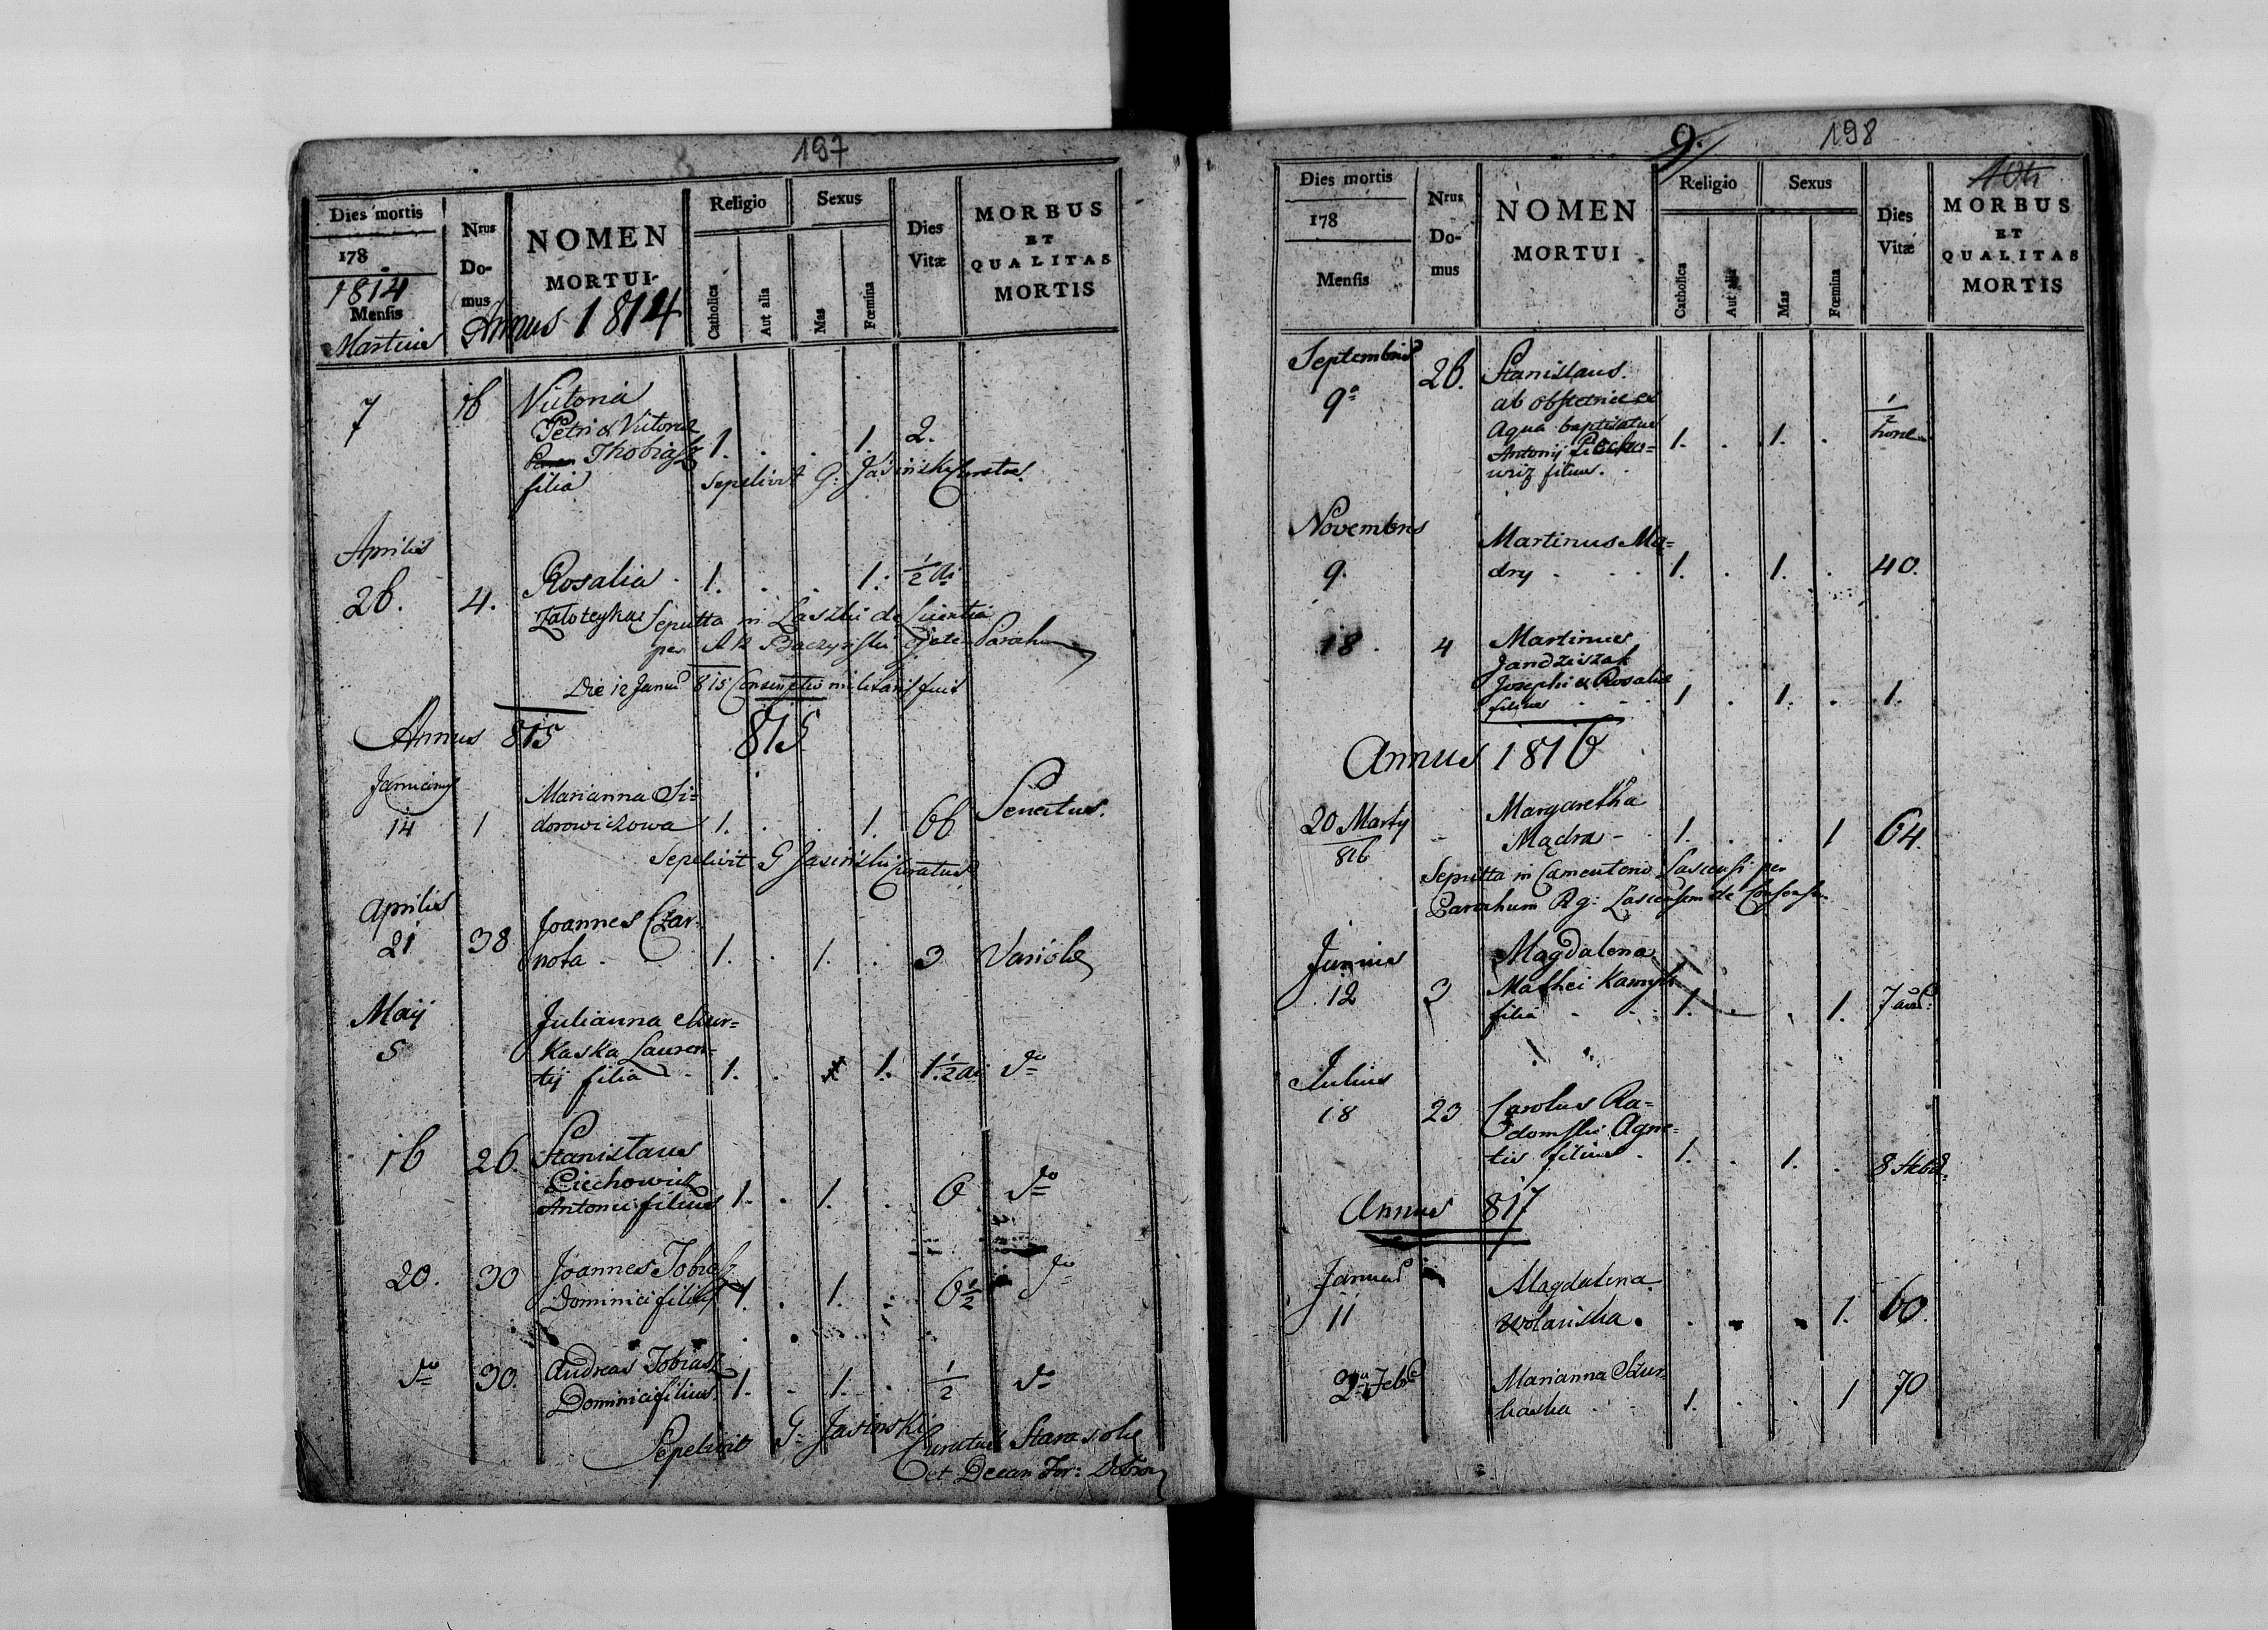 197
Dies mortis
178
1814
Mensis
Martius
Nrus
Do-
mus
NOMEN
MORTUI
Annus 1814
Religio
Catholica
Aut alia
Sexus
Mas
Fœmina
Dies
Vitæ
MORBUS
ET
QUALITAS
MORTIS
7 16 Victoria
Petri & Victoria
Thobiasz 1. . . 1. 2.
filia Sepelivit G: Jasinski Curatus.
Aprilis
26. 4. Rosalia . 1. . . 1. 1/2 ai
Sepulta in Laszki de Licentia
per
Die 12 Januar 815 militaris fuit
Annus 815 815
Januarius
14 1 Marianna Si=
dorowiczowa 1. . . 1. 66 Senectus.
Sepelivit G Jasinski Curatus
Aprilis
21 38 Joannes Czar-
nota . 1. . 1. . 3 Variole
Maij
5 Julianna
kaska Lauren=
tij filia 1. . 1. 1 1/2 ai do
16 26. Stanislaus
Ciechowicz
Antonii filius 1. . 1. . 6 do
20. 30 Joannes Tobiasz
Dominici filius 1. . 1. . 6 1/2 do
do 30. Andreas Tobiasz
Dominici filius. 1. . 1. . 1/2 do
Sepelivit G: Jasinski
Curatus Starasolie
et Decan For: Dobrom
9. 198
Dies mortis
178
Mensis
Nrus
Do-
mus
NOMEN
MORTUI
Religio
Catholica
Aut alia
Sexus
Mas
Fœmina
Dies
Vitæ
MORBUS
ET
QUALITAS
MORTIS
Septembris
9a 26. Stanislaus.
ab obstetrice ex
Aqua baptisatus
Antonij 1. . 1. . 1/2 hore
wicz filius.
Novembris
9. Martinus Mą=
dry . . . 1. . 1. . 40.
18. 4 Martinus
Jandziszak
Josephi & Rosalie
filius . . . 1 . 1. . 1.
Annus 1816
20 Martij
816 Margaretha
Mądra - . 1. . . 1 64.
Sepulta in Cæmenterio Lascensi per
Parochum Rg: Lascensem de Consensu
Junius
12 3 Magdalena
Mathei
filia . . 1. . 1. 7
Julius
18 23 Carolus Ra=
domski Agne=
tis filius . 1. . 1. . 8 Hebd.
Annus 817
Januar
11 Magdalena
Wolanska . . . . 1. 60.
2da Febr Marianna
kaska . . 1. . . 1 70